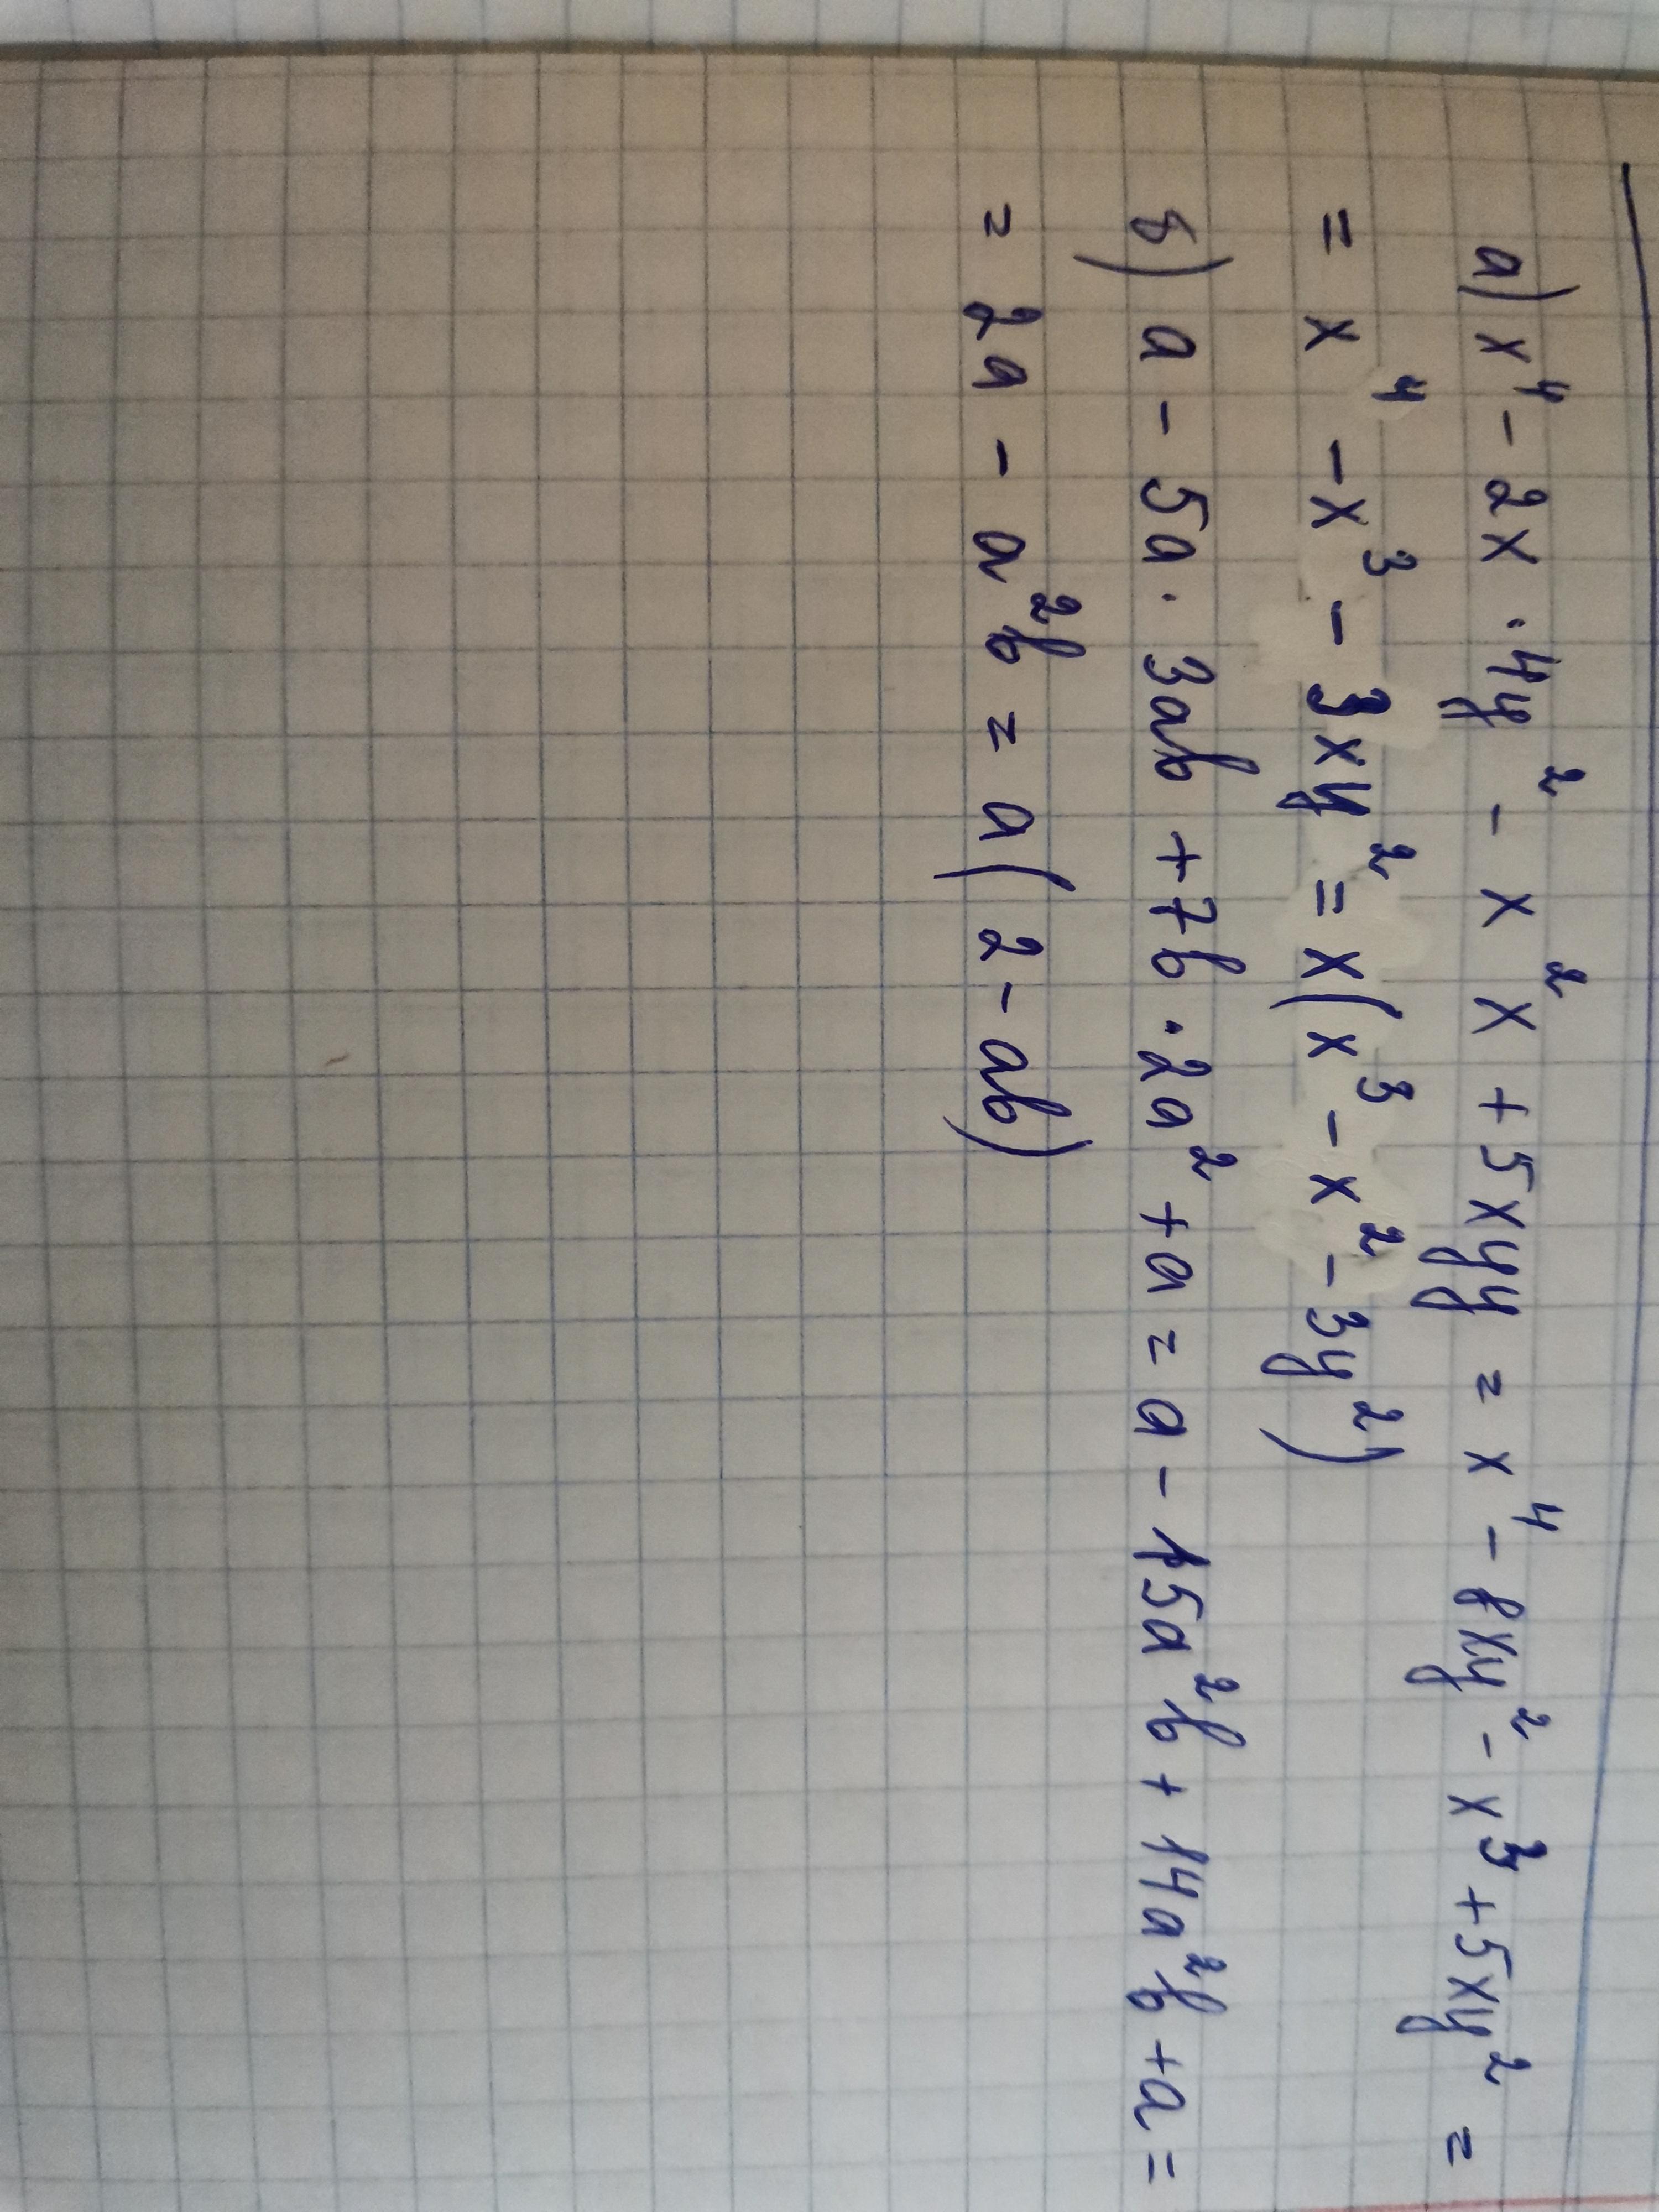 а) x⁴ - 2x · 4y² - x² x + 5xyy = x⁴ - 8xy² - x³ + 5xy² =
= x⁴ - x³ - 3xy² = x(x³ - x² - 3y²)
б) a - 5a · 3ab + 7b · 2a² + a = a - 15a²b + 14a²b + a =
= 2a - a²b = a(2 - ab)